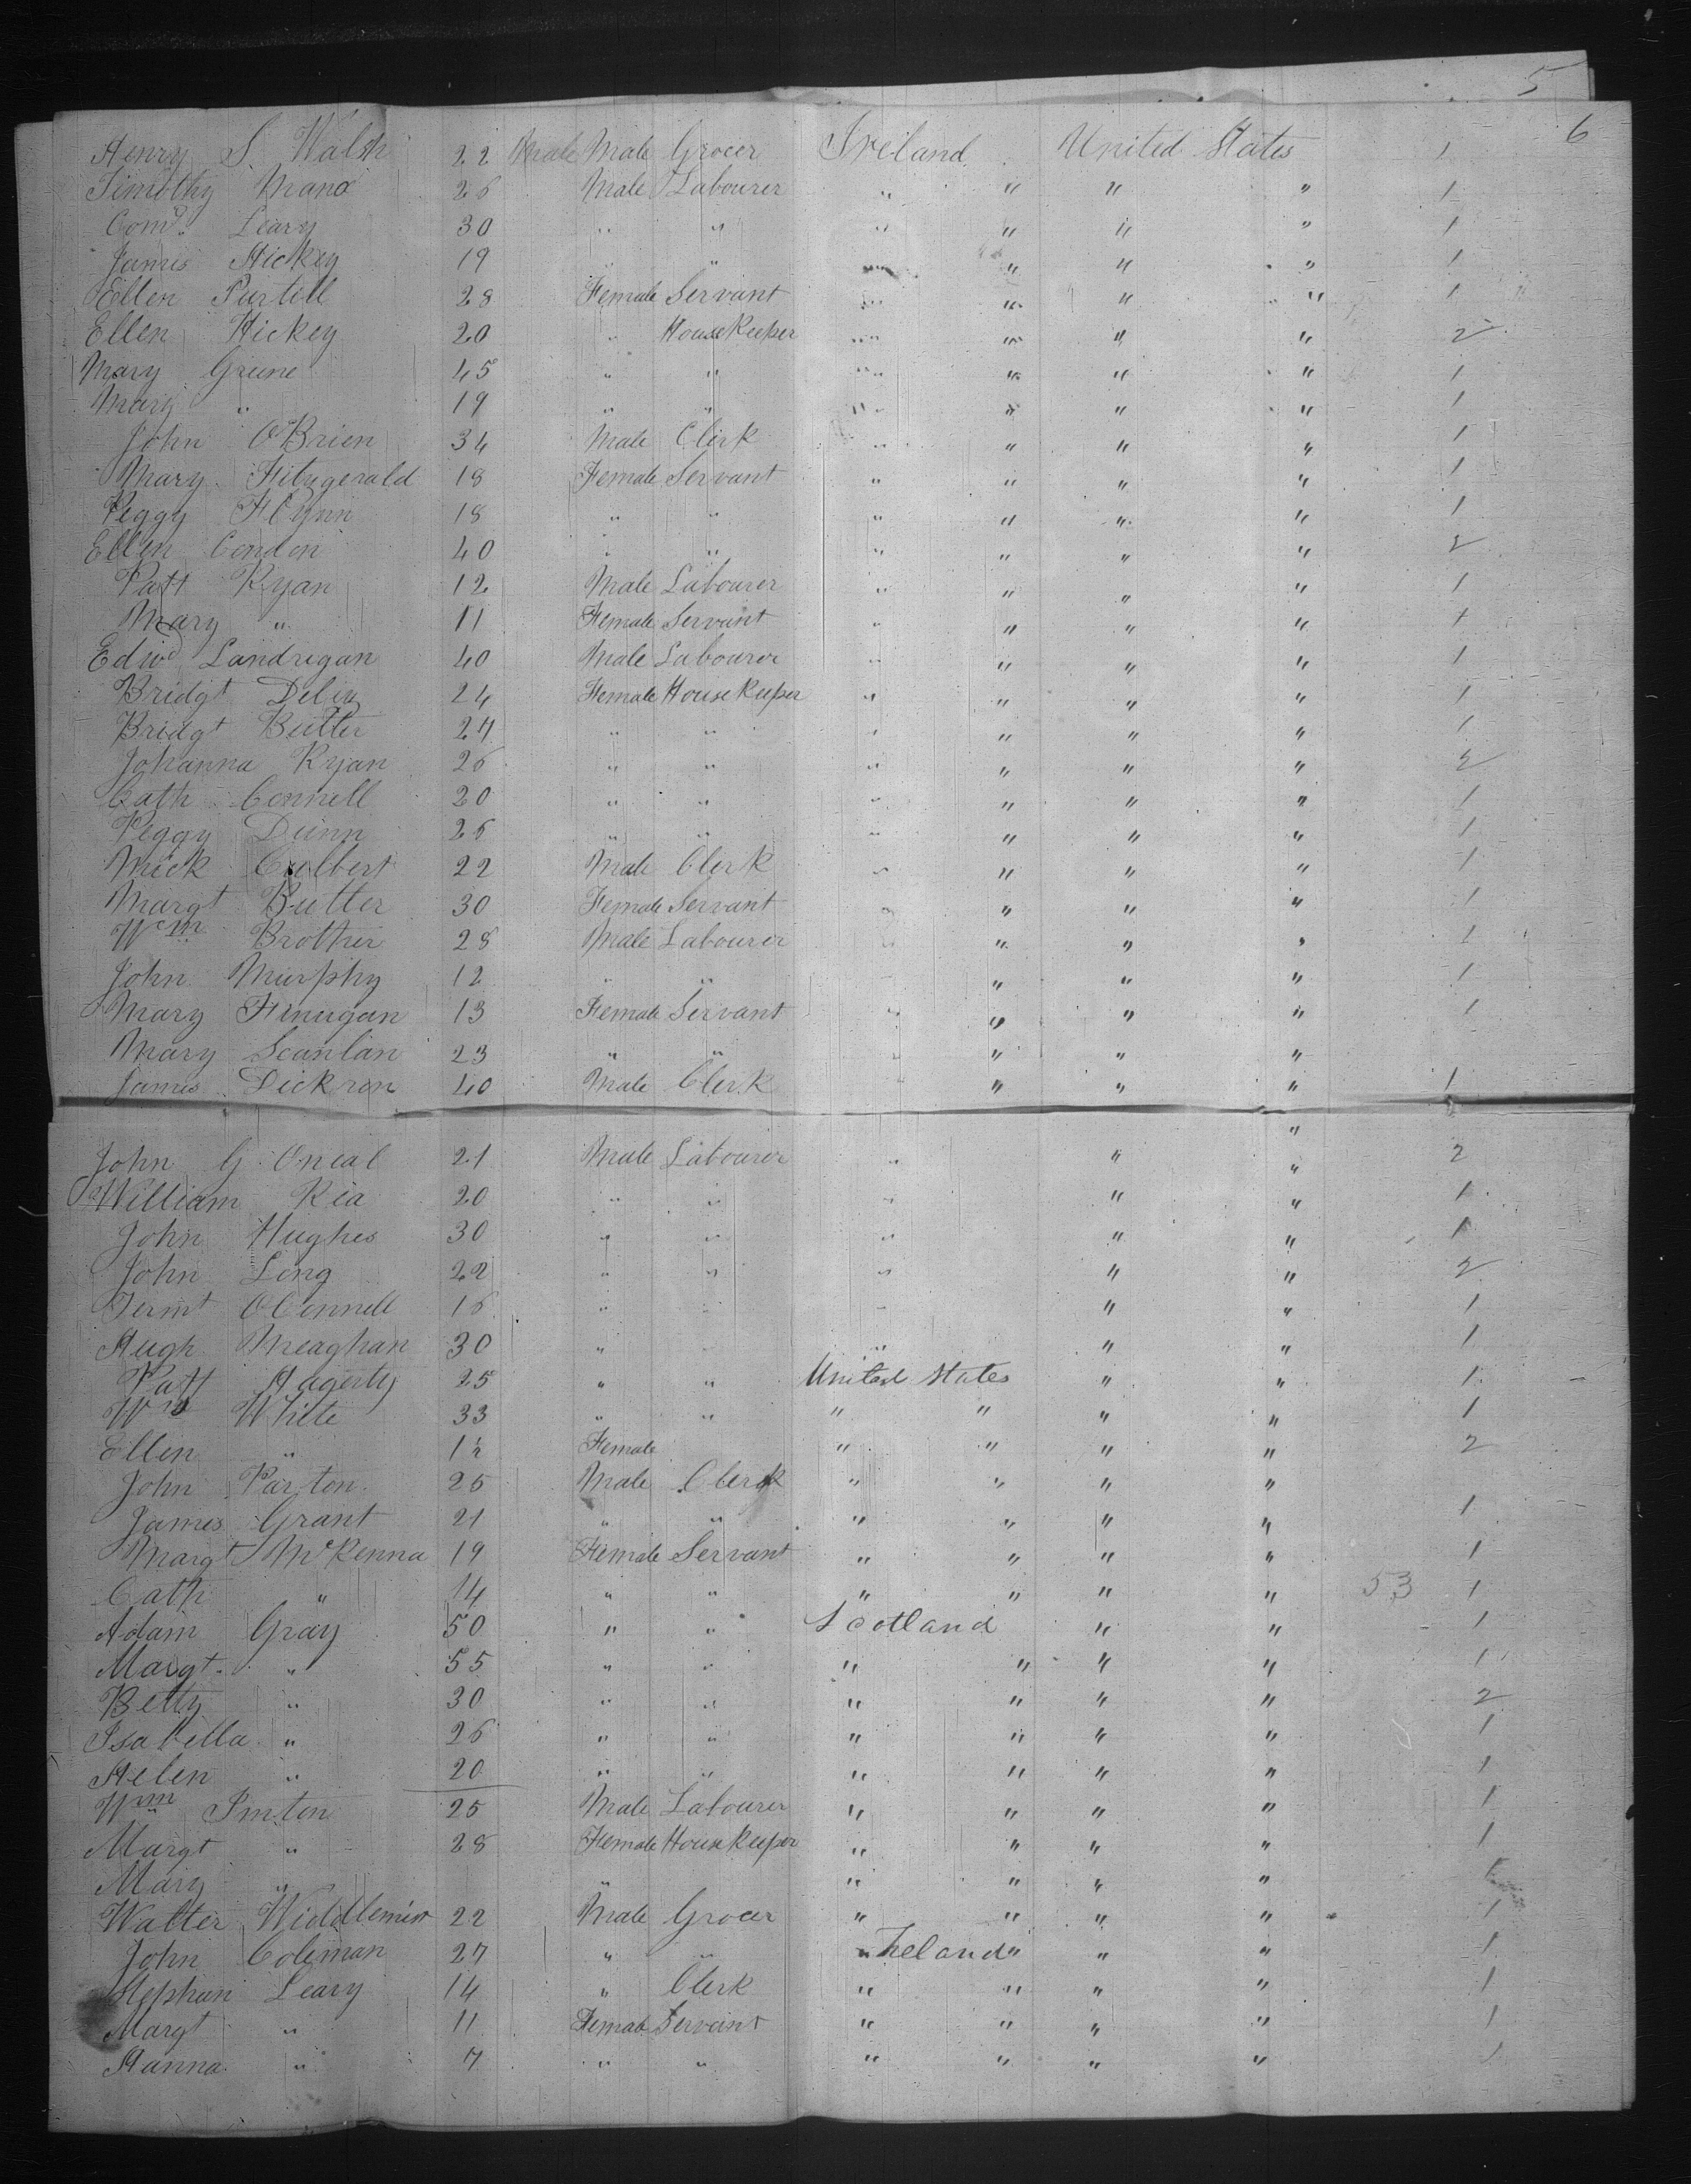 5
6
Henry S. Walsh 22 Male Male Grocer Ireland United States 1
Timothy 26 Male Labourer " " " " 1
Leary 30 " " " " " " 1
James Hickey 19 " " " " " " 1
Ellen Purtill 28 Female Servant " " " " 1
Ellen Hickey 20 " HouseKeeper " " " " 2
Mary Greene 45 " " " " " " 1
Mary " 19 " " " " " " 1
John OBrien 34 Male Clerk " " " " 1
Mary Fitzgerald 18 Female Servant " " " " 1
Peggy Flynn 18 " " " " " " 1
Ellen Condon 40 " " " " " " 2
Patt Ryan 12 Male Labourer " " " " 1
Mary " 11 Female Servant " " " " 1
Edwd Landrigan 40 Male Labourer " " " " 1
Bridgt 24 Female HouseKeeper " " " " 1
Bridgt Butler 24 " " " " " " 1
Johanna Ryan 26 " " " " " " 2
Cath Connell 20 " " " " " " 1
Peggy Dunn 26 " " " " " " 1
Mick Culbert 22 Male Clerk " " " " 1
Margt Butler 30 Female Servant " " " " 1
Wm Brother 28 Male Labourer " " " " 1
John Murphy 12 " " " " " 1
Mary Finnigan 13 Female Servant " " " " 1
Mary Scanlan 23 " " " " " "
James Dickson 40 Male Clerk " " " 1
"
John G. Oneal 21 Male Labourer " " " 2
William Rea 20 " " " " " 1
John Hughes 30 " " " " " 1
John Ling 22 " " " " " 2
OConnell 16 " " " " " 1
Hugh Meaghan 30 " " " " " 1
Patt Hagerty 25 " " United States " " 1
Wm White 33 " " " " " " 1
Ellen " 12 Female " " " " 2
John Parton 25 Male Clerk " " " "
James Grant 21 " " " " " " 1
Margt McKenna 19 Female Servant " " " " 1
Cath " 14 " " " " " " 53 1
Adam Gray 50 " " Scotland " " 1
Margt. " 55 " " " " " " 1
Betty " 30 " " " " " " 2
Isabella " 26 " " " " " " 1
Helen " 20 " " " " " " 1
Wm 25 Male Labourer " " " " 1
Margt " 28 Female HouseKeeper " " " " 1
Mary " " " " " "
Walter 22 Male Grocer " " " " 1
John Coleman 27 " " " Ireland " " " 1
Stephen Leary 14 " Clerk " " " " 1
Margt " 11 Female Servant " " " " 1
Hanna " 7 " " " " " " 1